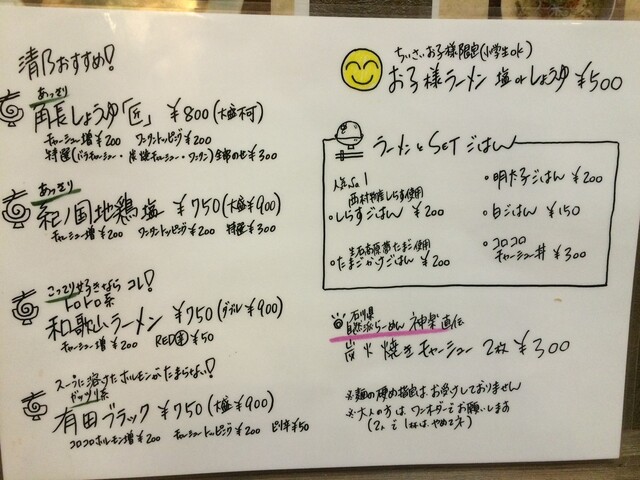 清乃おすすめ!
あっさり
角長しょうゆ「匠」 ¥800(大盛不可)
チャーシュー増¥200 ワンタントッピング¥200
特選(バラチャーシュー・炭焼チャーシュー・ワンタン)全部のせ¥300
あっさり
紀ノ国地鶏塩 ¥750(大盛¥900)
チャーシュー増¥200 ワンタントッピング¥200 特選¥300
こってり好きなら コレ!
トロトロ系
和歌山ラーメン ¥750(ダブル¥900)
チャーシュー増¥200 ¥50
スープに溶けたホルモンがたまらない!
ガッツリ系
有田ブラック ¥750(大盛¥900)
コロコロホルモン増¥200 チャーシュートッピング¥200 ピリ辛¥50
ちいさいお子様限定(小学生ok)
お子様ラーメン 塩orしょうゆ ¥500
ラーメンとSETごはん
人気No1
西村物産しらす使用
・しらすごはん ¥200
生石高原の卵たまご使用
・たまごかけごはん ¥200
・明太子ごはん ¥200
・白ごはん ¥150
・コロコロ
チャーシュー丼 ¥300
石川県
自然派らーめん 神楽 直伝
炭火焼きチャーシュー 2枚 ¥300
※麺の硬め指定は、お受けしておりません
※大人の方は ワンオーダーでお願いします
(2人で1杯は、やめてネ)